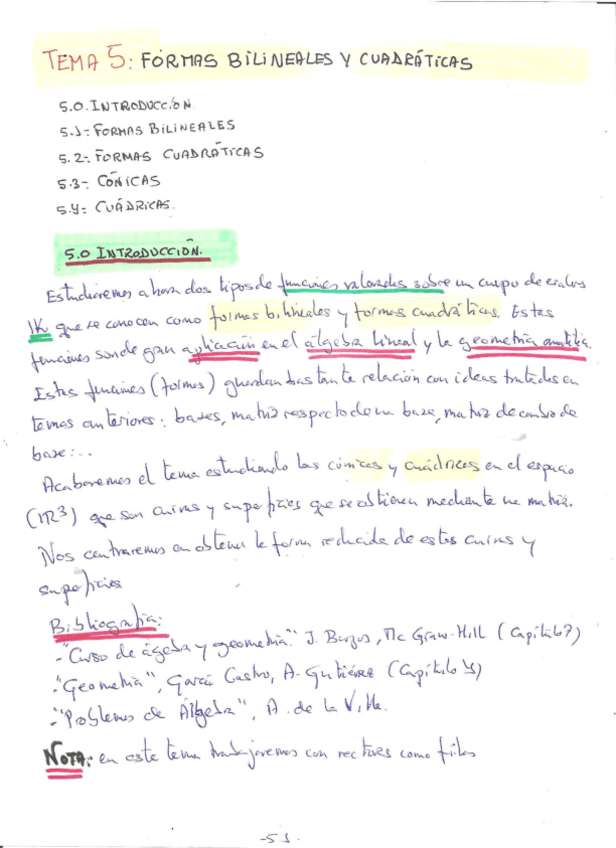 TEMA 5: FORMAS BILINEALES Y CUADRÁTICAS
5.0. INTRODUCCIÓN.
5.1- FORMAS BILINEALES
5.2- FORMAS CUADRÁTICAS
5.3- CÓNICAS
5.4- CUÁDRICAS.
5.0 INTRODUCCIÓN.
Estudiaremos ahora dos tipos de funciones valoradas sobre un cuerpo de escalares
IK que se conocen como formas bilineales y formas cuadráticas. Estas
funciones son de gran aplicación en el álgebra lineal y la geometría analítica.
Estas funciones (formas) guardan bastante relación con ideas tratadas en
temas anteriores: bases, matriz respecto de una base, matriz de cambio de
base...
Acabaremos el tema estudiando las cónicas y cuádricas en el espacio
(IR³) que son curvas y superficies que se obtienen mediante una matriz.
Nos centraremos en obtener la forma reducida de estas curvas y
superficies
Bibliografía:
- "Curso de álgebra y geometría." J. Burgos, Mc Graw-Hill (Capítulo 7)
- "Geometría", García Castro, A. Gutiérrez (Capítulo
- "Problemas de Álgebra", A. de la Villa.
NOTA: en este tema trabajaremos con vectores como filas
-5.1-